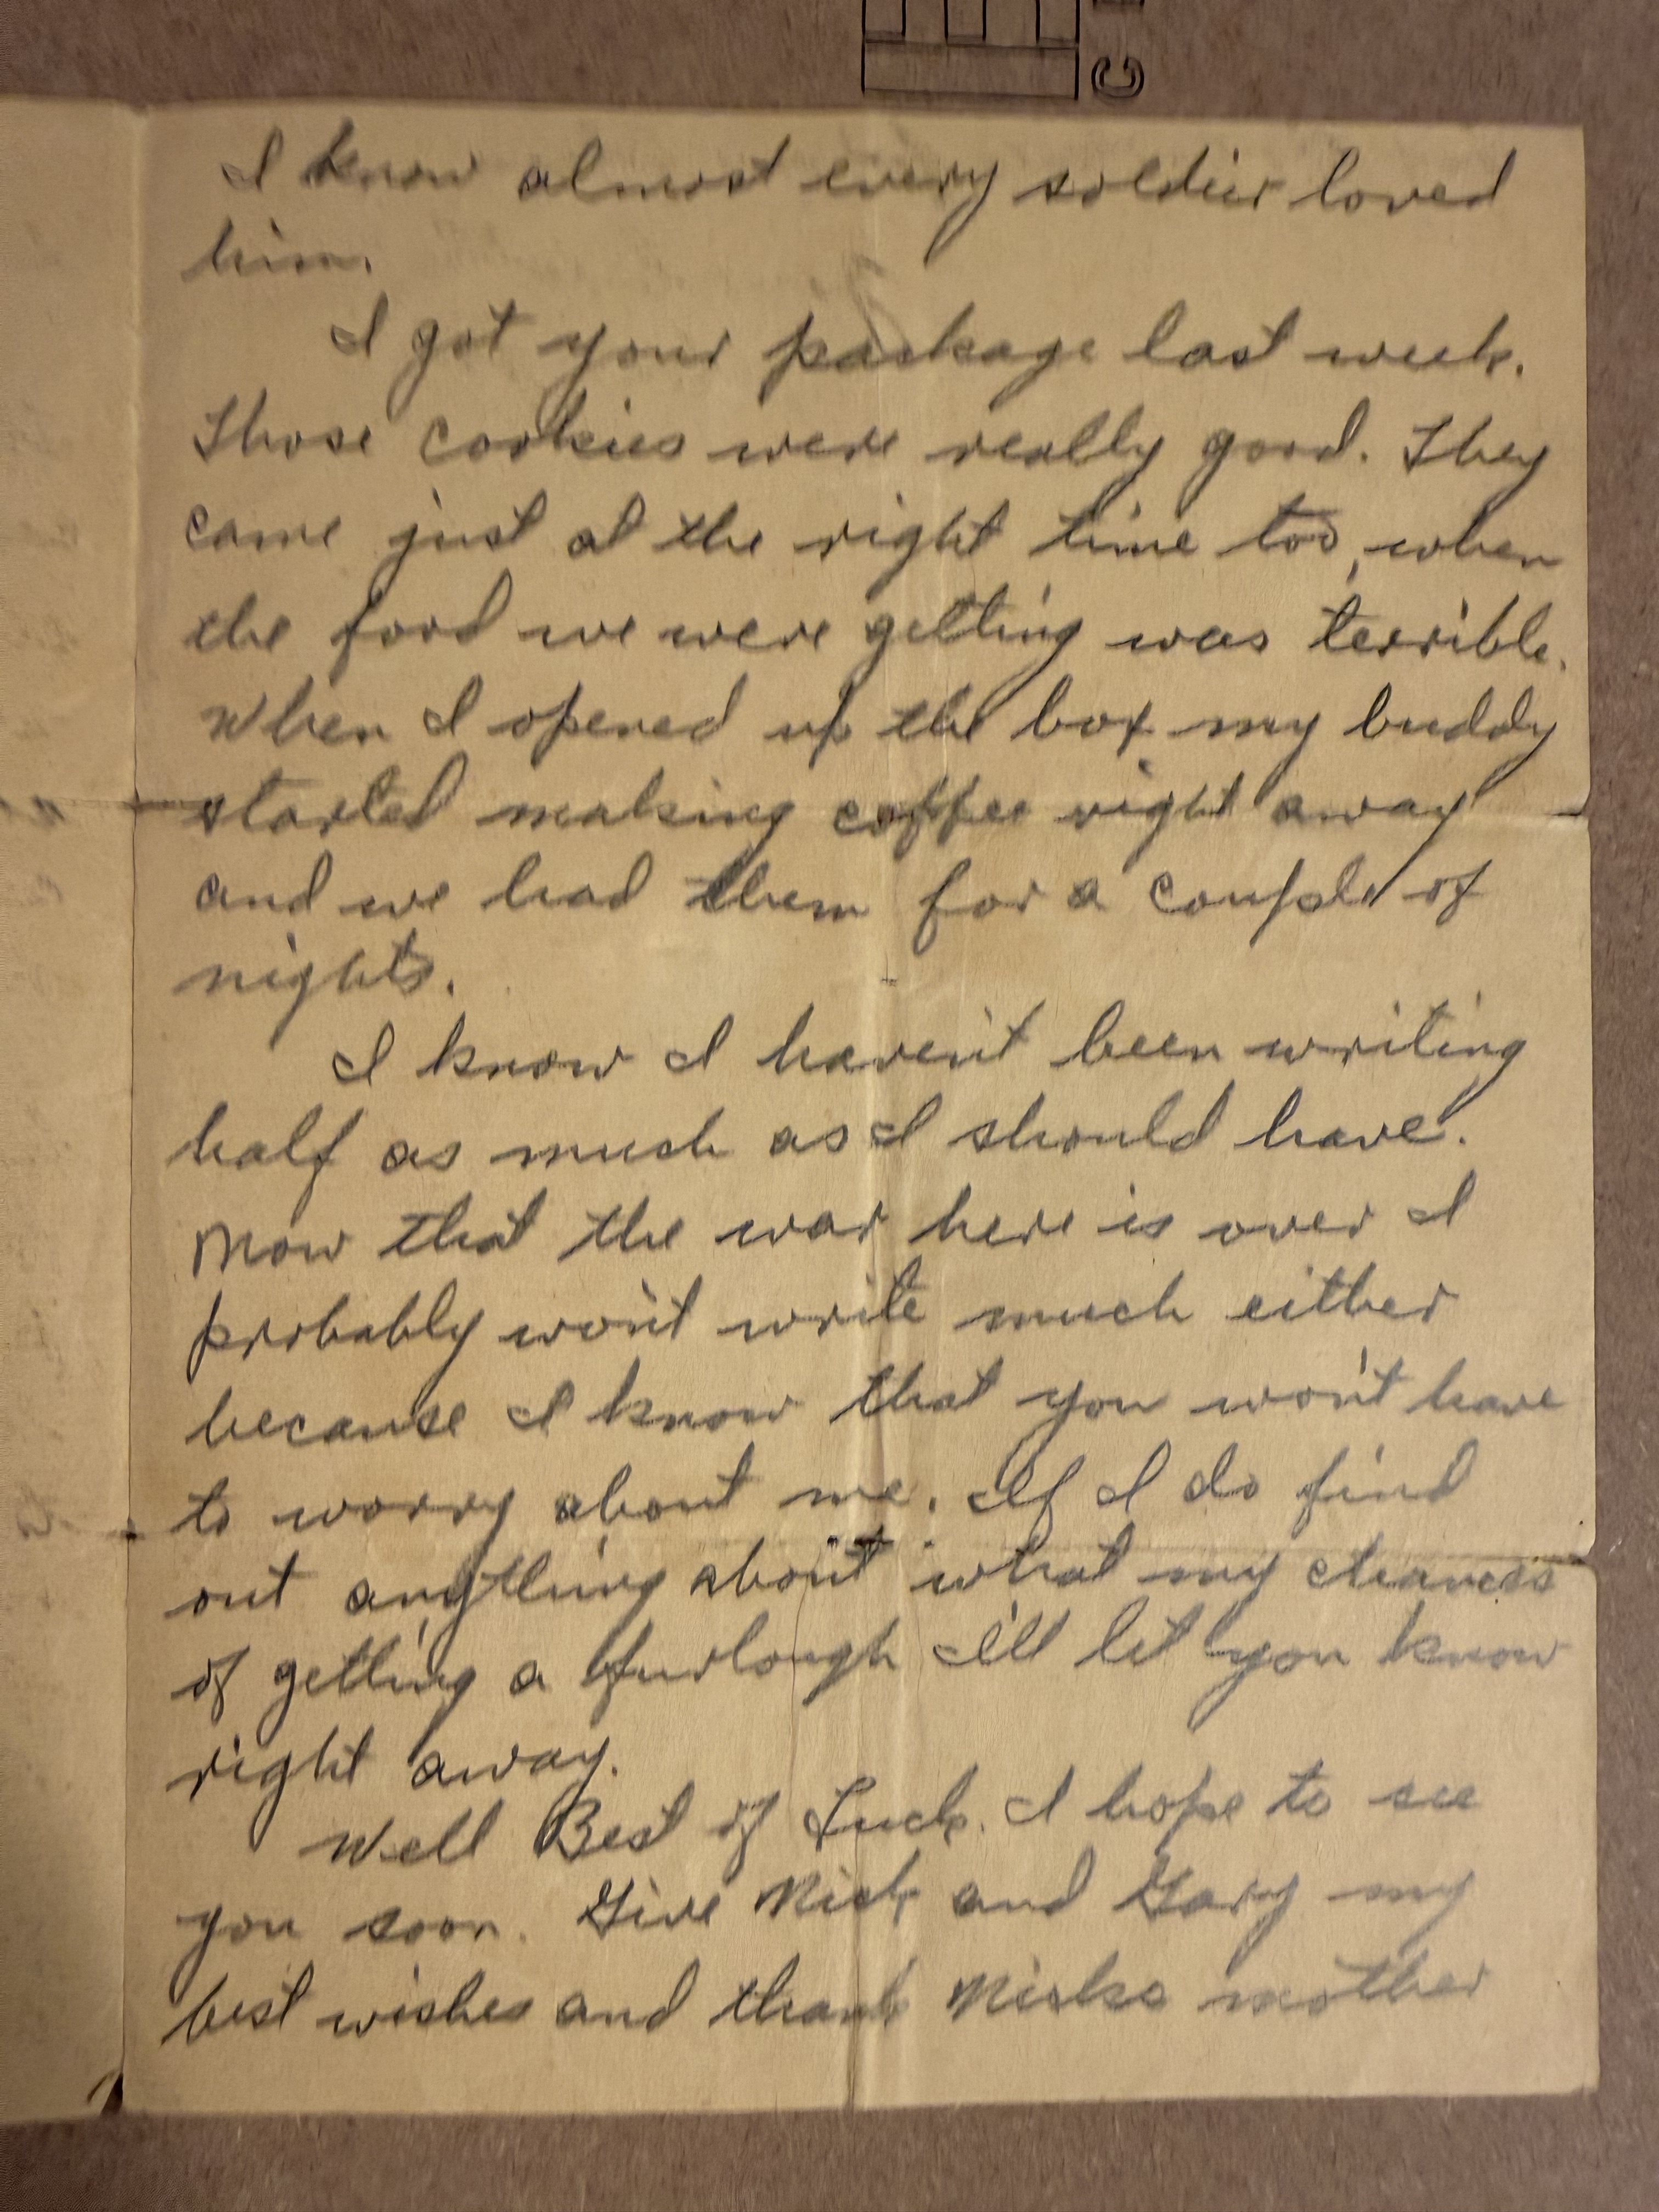 I know almost every soldier loved
him.
I got your package last week.
Those cookies were really good. They
came just at the right time too, when
the food we were getting was terrible.
When I opened up the box my buddy
started making coffee right away
and we had them for a couple of
nights.
I know I haven't been writing
half as much as I should have.
Now that the war here is over I
probably won't write much either
because I know that you won't have
to worry about me. If I do find
out anything about what my chances
of getting a furlough I'll let you know
right away.
Well Best of Luck. I hope to see
you soon. Give Nick and Gary my
best wishes and thank Nicks mother